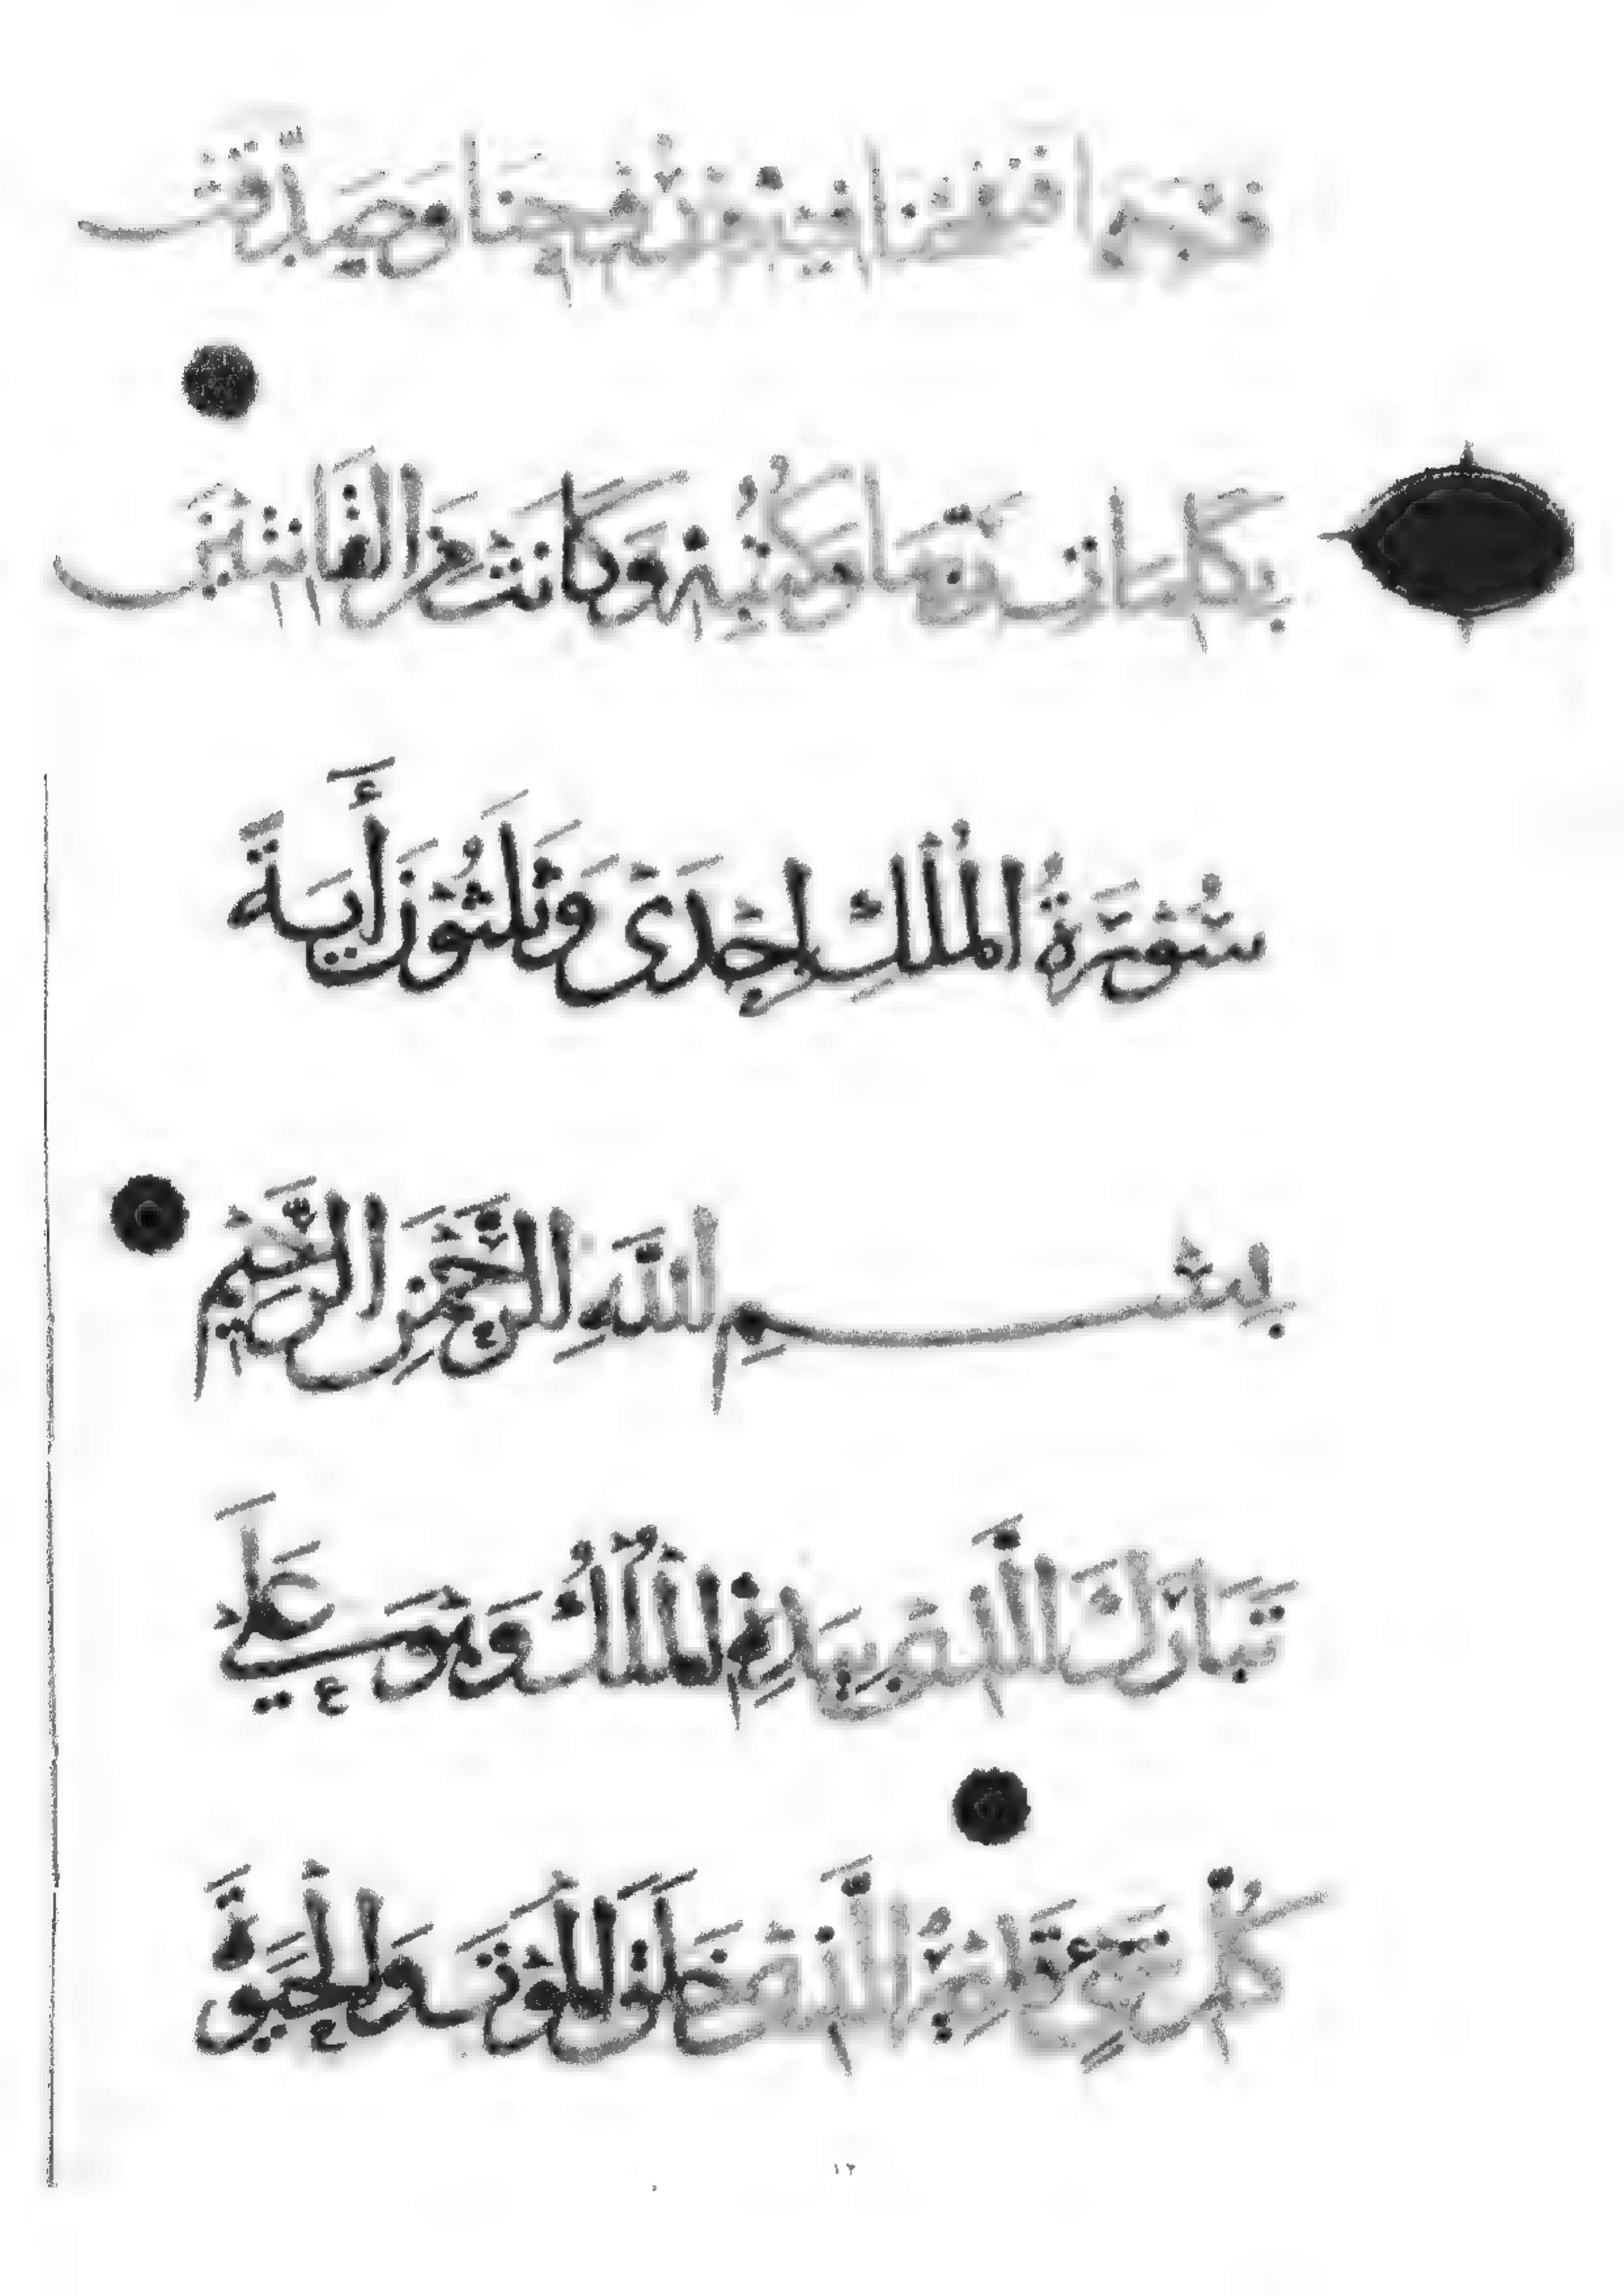 فَرْجَهَا فَنَفَخْنَا فِيهِ مِنْ رُوحِنَا وَصَدَّقَتْ
بِكَلِمَاتِ رَبِّهَا وَكُتُبِهِ وَكَانَتْ مِنَ الْقَانِتِينَ
سُوْرَةُ الْمُلْكِ اِحْدَىْ وَثَلٰثُوْنَ أَيَةً
بِسْمِ اللَّهِ الرَّحْمَنِ الرَّحِيْمِ
تَبَارَكَ الَّذِىْ بِيَدِهِ الْمُلْكُ وَهُوَ عَلَى
كُلِّ شَىْءٍ قَدِيْرٌ الَّذِىْ خَلَقَ الْمَوْتَ وَالْحَيٰوةَ
١٢